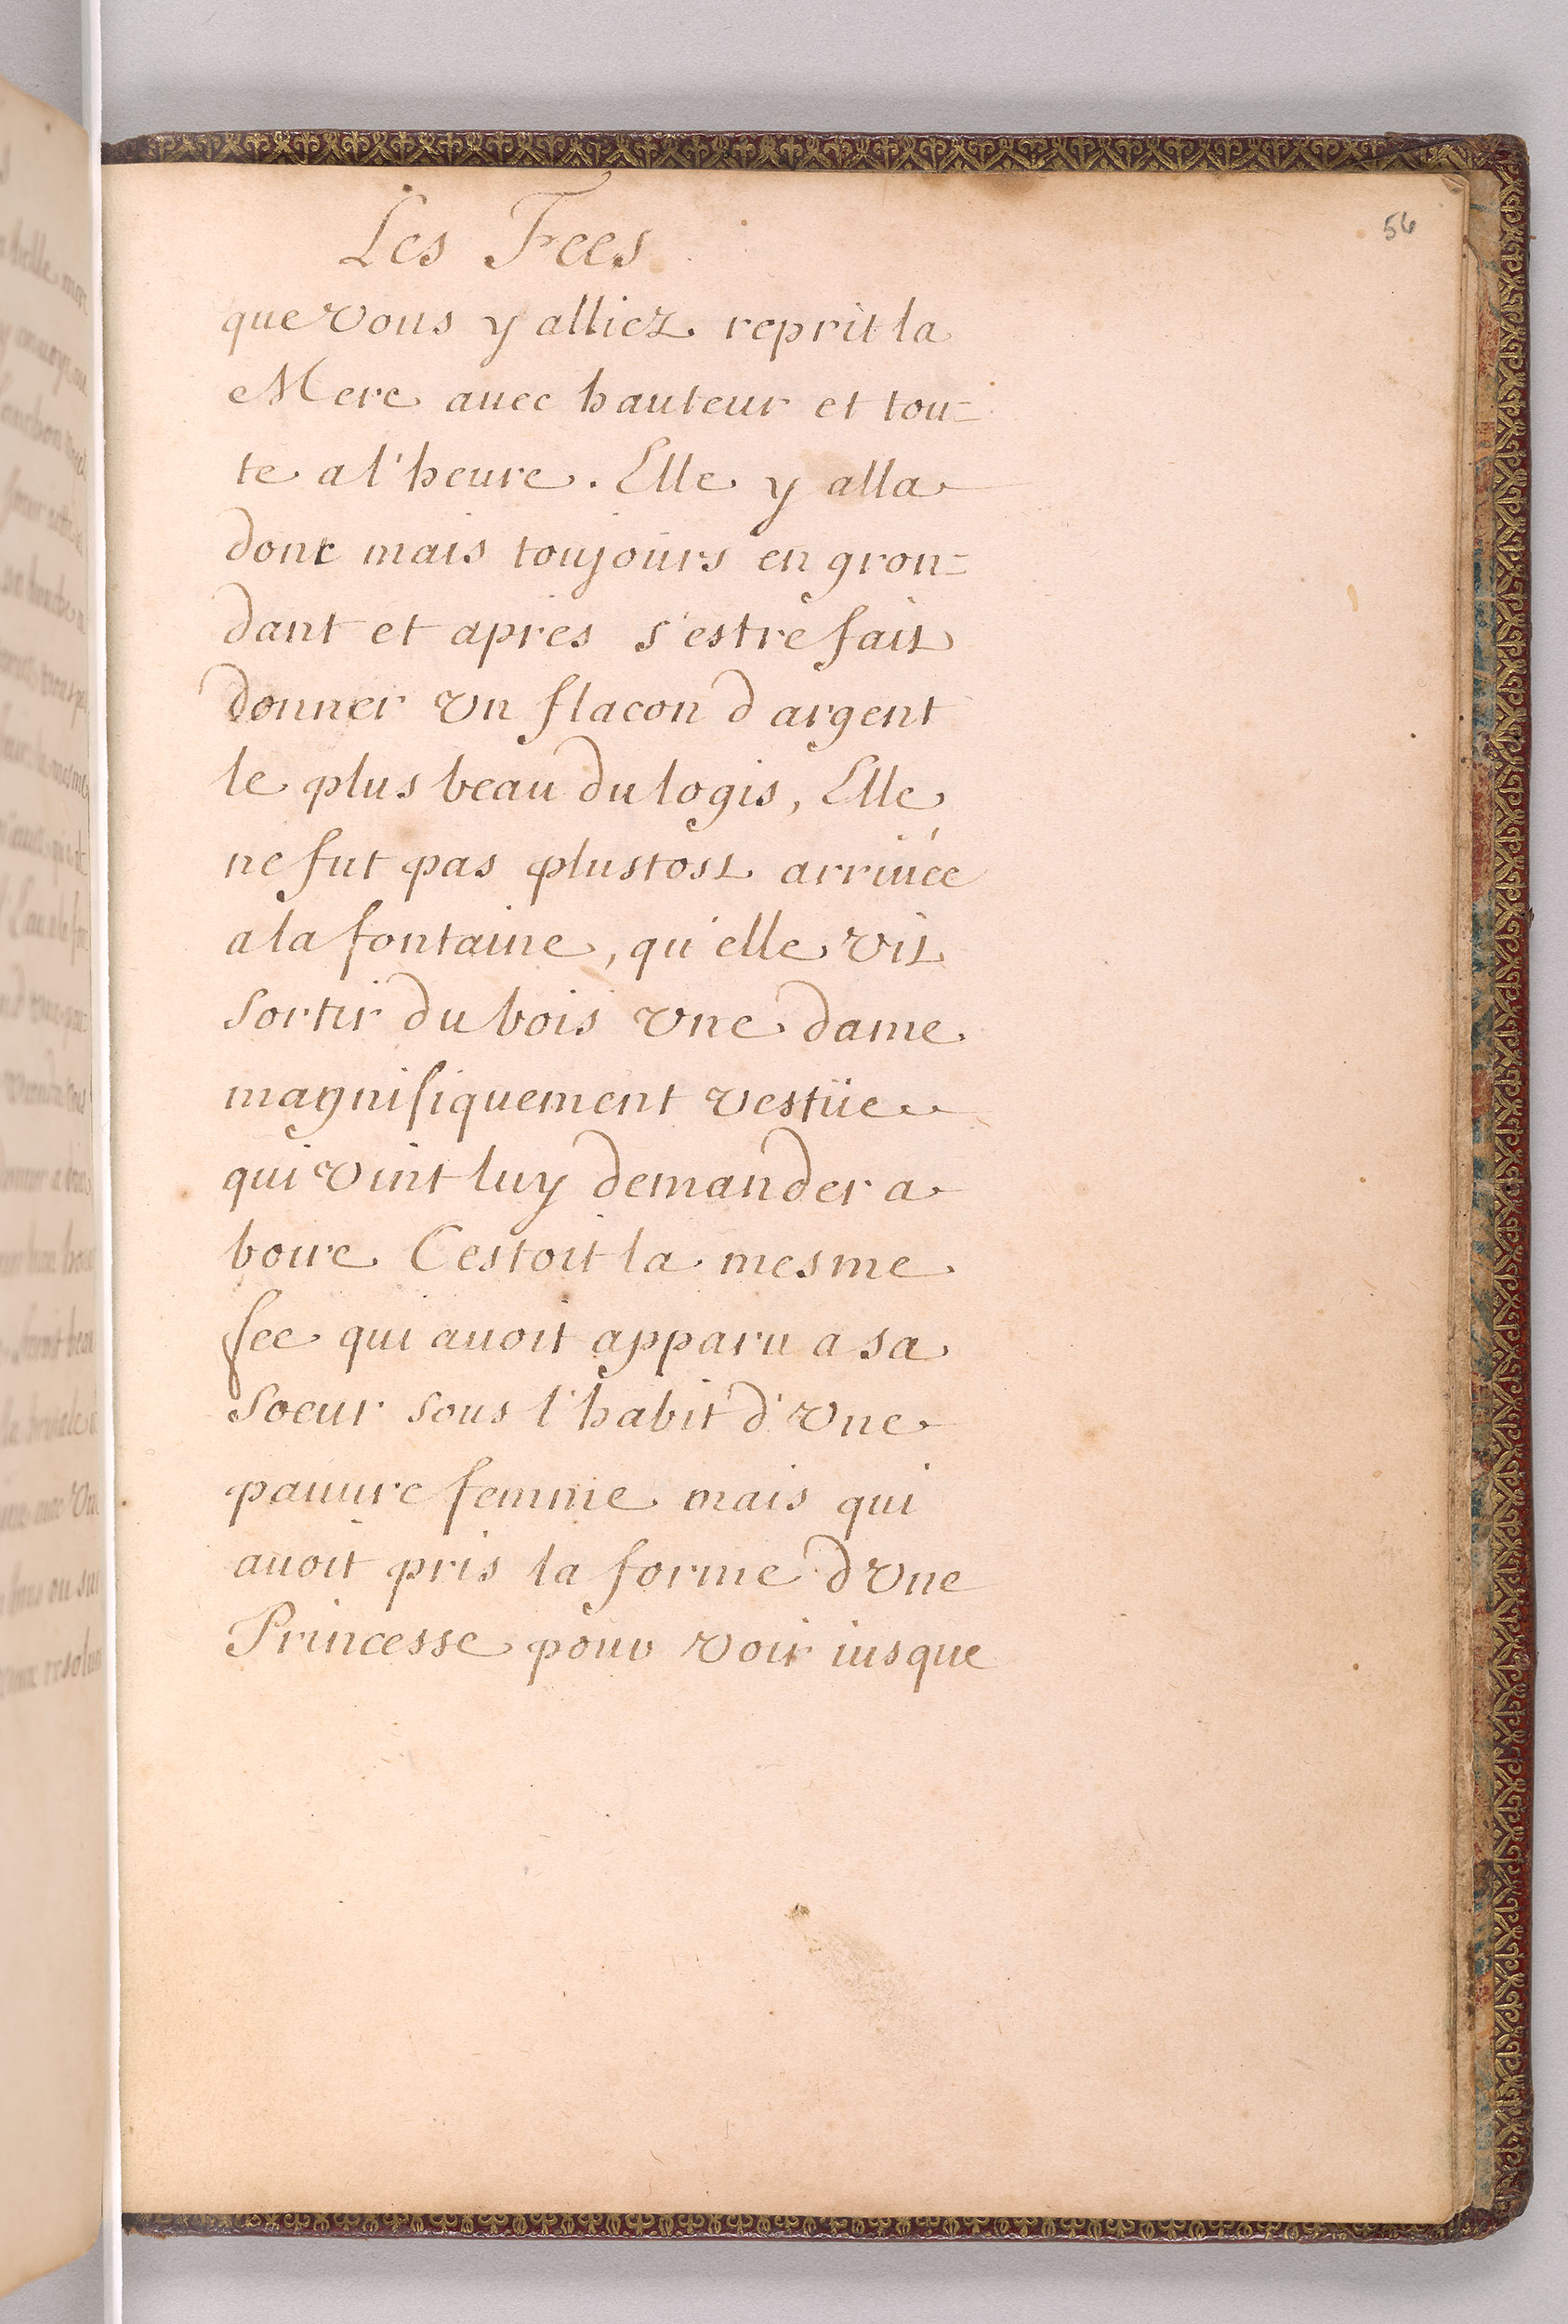 56
Les Fees
que vous y alliez reprit la
Mere auec hauteur et tou=
te a l'heure. Elle y alla
donc mais toujours en gron=
dant et apres s'estre fait
donner vn flacon d argent
le plus beau du logis, Elle
ne fut pas plustost arriuée
a la fontaine, qu'elle vit
sortir du bois vne dame
magnifiquement vestüe
qui vint luy demander a
boire Cestoit la mesme
fee qui auoit apparu a sa
soeur sous l'habit d'vne
pauure femme mais qui
auoit pris la forme d'vne
Princesse pour voir iusque